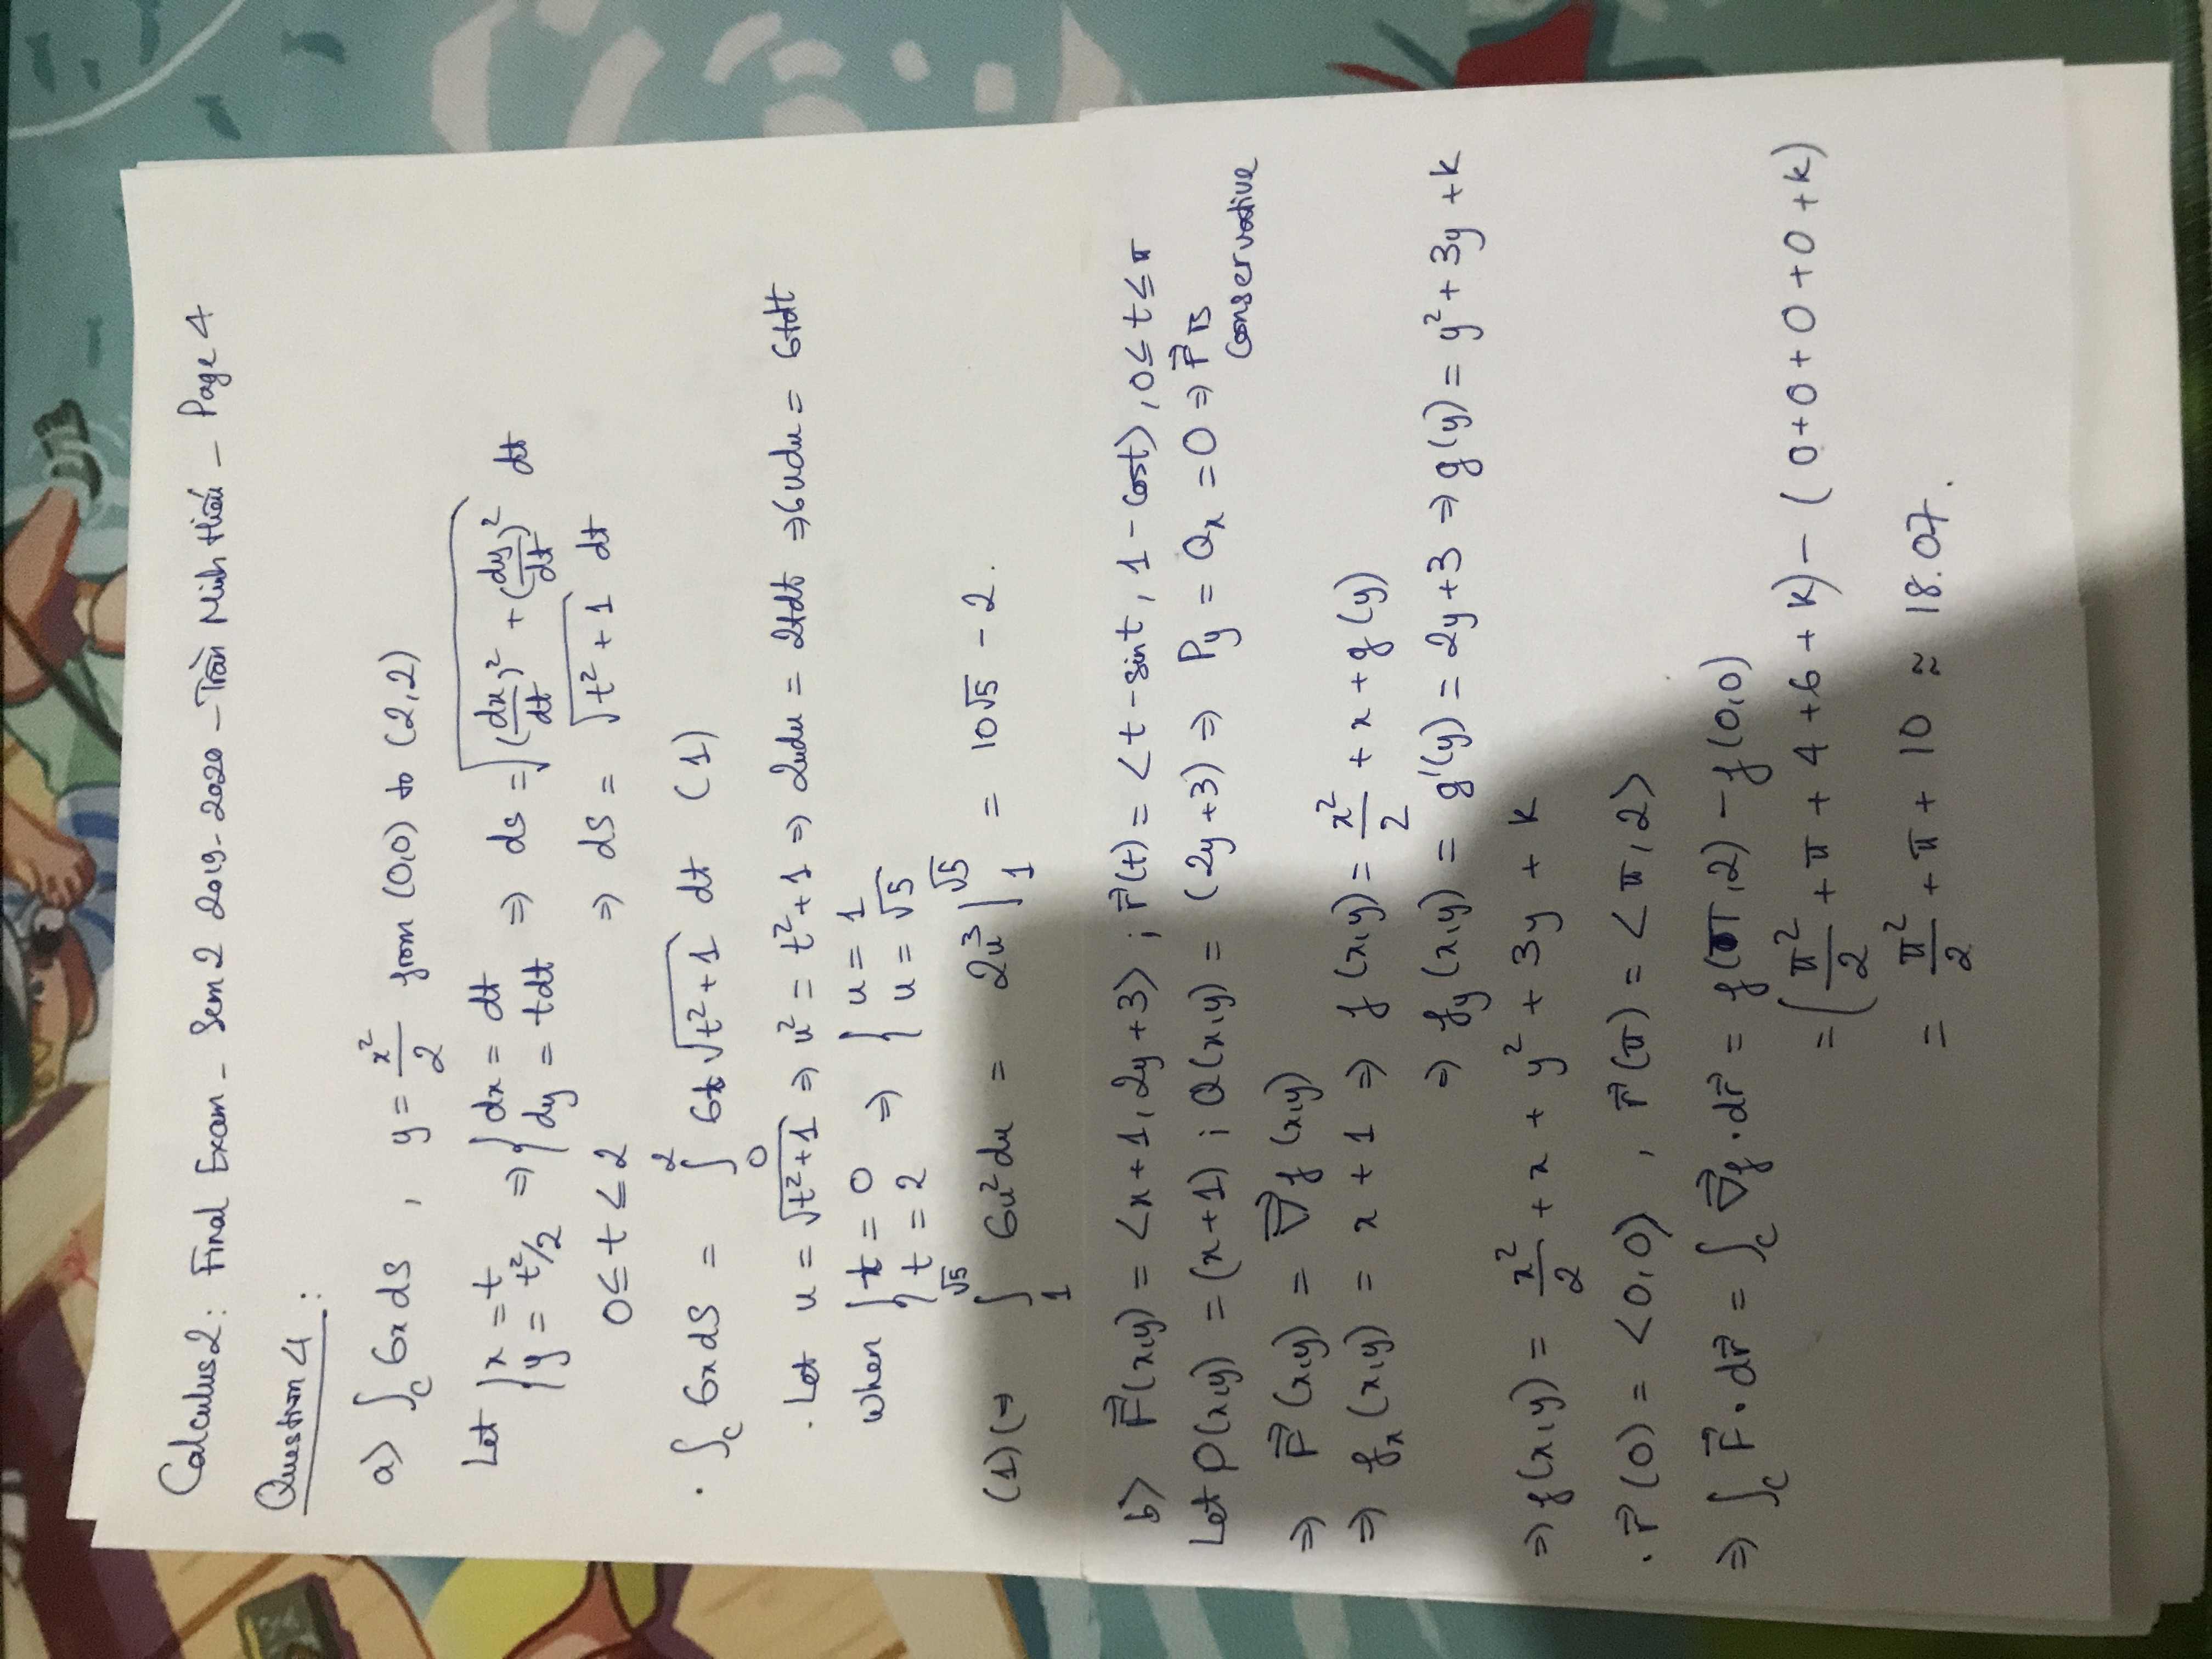 Calculus 2: Final Exam - Sem 2 2019-2020 - Trần Minh Hiếu - Page 4
Question 4:
a) ∫_C 6x ds , y = x²/2 from (0,0) to (2,2)
Let { x = t ; y = t²/2 ⇒ { dx = dt ; dy = tdt ⇒ ds = √((dx/dt)² + (dy/dt)²) dt
0 ≤ t ≤ 2 ⇒ ds = √(t² + 1) dt
· ∫_C 6x ds = ∫_0^2 6t √(t² + 1) dt (1)
· Let u = √(t² + 1) ⇒ u² = t² + 1 ⇒ 2udu = 2tdt ⇒ 6udu = 6tdt
when { t = 0 ; t = 2 ⇒ { u = 1 ; u = √5
(1) (⇒ ∫_1^√5 6u² du = 2u³ |_1^√5 = 10√5 - 2.
b) F⃗(x,y) = <x+1, 2y+3> ; r⃗(t) = <t - sint, 1 - cost>, 0 ≤ t ≤ π
Let P(x,y) = (x+1) ; Q(x,y) = (2y+3) ⇒ P_y = Q_x = 0 ⇒ F⃗ is
conservative
⇒ F⃗(x,y) = ∇⃗f(x,y)
⇒ f_x(x,y) = x + 1 ⇒ f(x,y) = x²/2 + x + g(y)
⇒ f_y(x,y) = g'(y) = 2y+3 ⇒ g(y) = y² + 3y + k
⇒ f(x,y) = x²/2 + x + y² + 3y + k
· r⃗(0) = <0,0> , r⃗(π) = <π,2>
⇒ ∫_C F⃗ · dr⃗ = ∫_C ∇⃗f · dr⃗ = f(π,2) - f(0,0)
= (π²/2 + π + 4 + 6 + k) - (0+0+0+0+k)
= π²/2 + π + 10 ≈ 18.07.